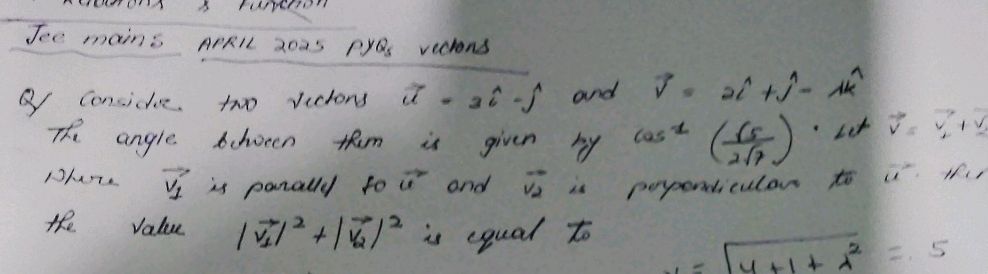 Relations & Function
Jee mains APRIL 2025 PYQs vectors
Q/ Consider two vectors u⃗ = 3î - ĵ and v⃗ = 2î + ĵ - λk̂
The angle between them is given by cos⁻¹ (√5/2√7). Let v⃗ = v⃗₁ + v⃗
where v⃗₁ is parallel to u⃗ and v⃗₂ is perpendicular to u⃗. then
the value |v⃗₁|² + |v⃗₂|² is equal to
√4+1+λ² = 5